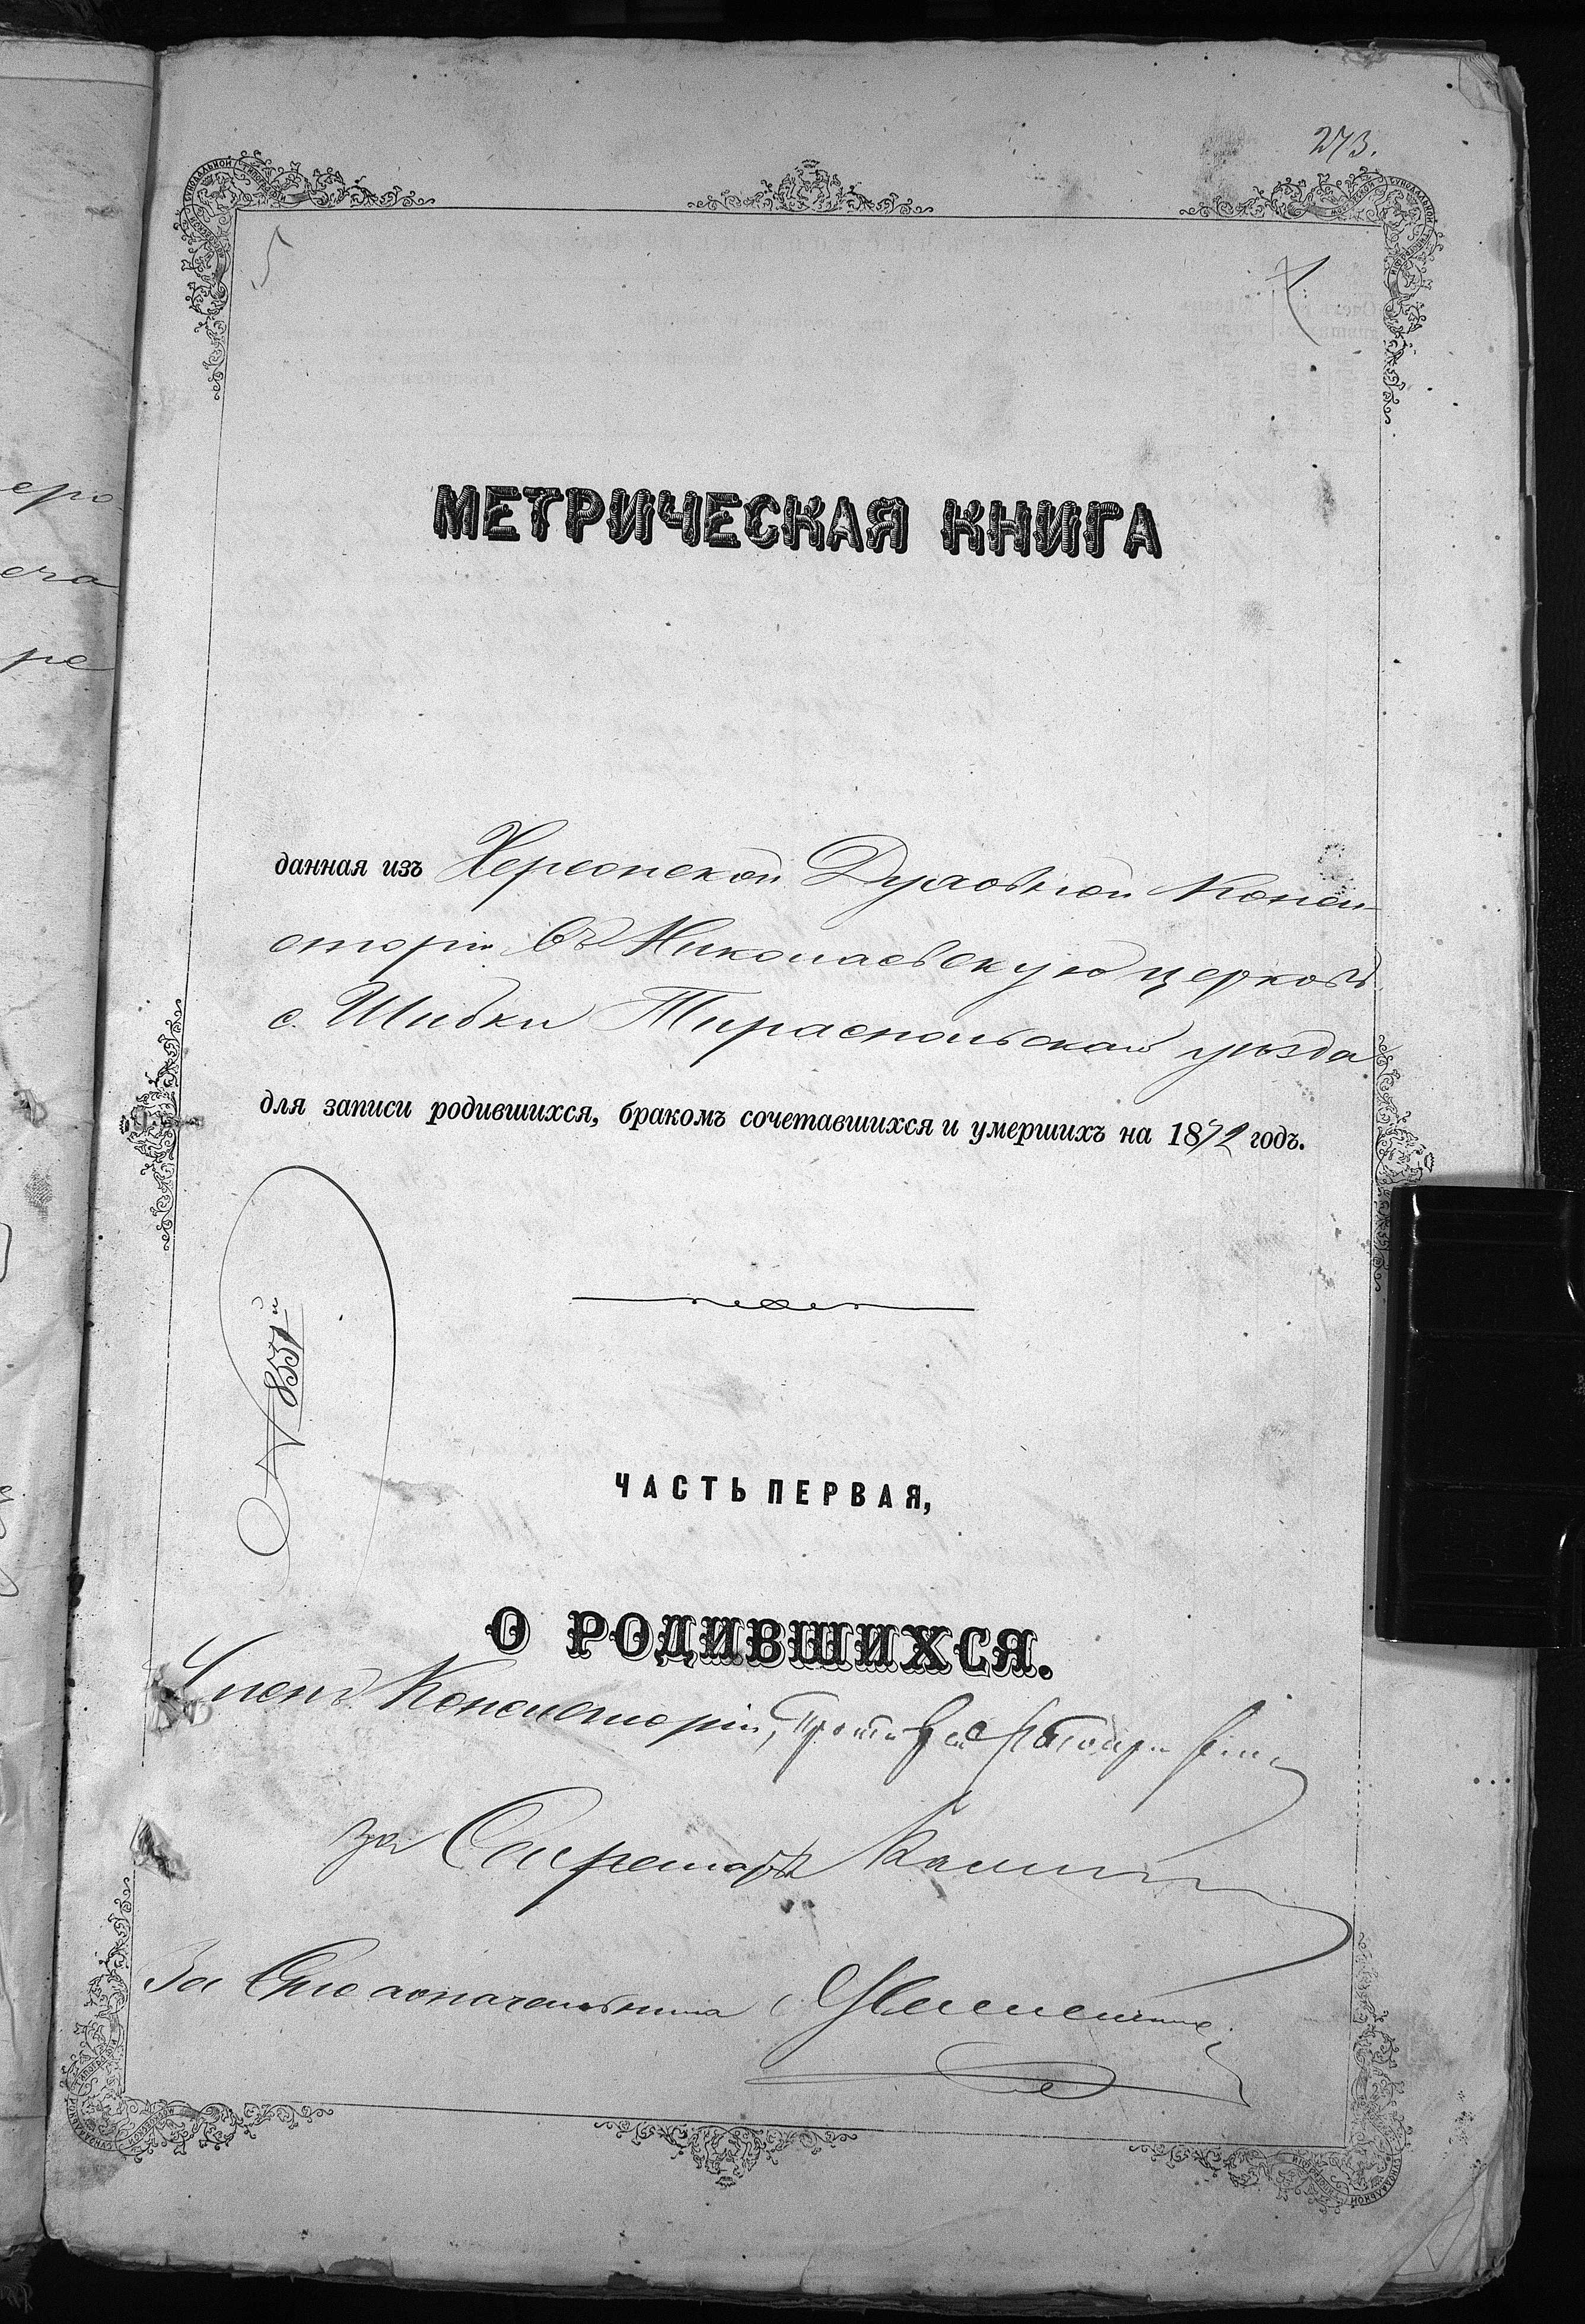 273.
МЕТРИЧЕСКАЯ КНИГА
данная изъ Херсонской Духовной Конси-
сторіи въ Николаевскую церковь
с. Шибки Тираспольскаго уѣзда
для записи родившихся, бракомъ сочетавшихся и умершихъ на 1872 годъ.
№ 8551й
ЧАСТЬ ПЕРВАЯ,
О РОДИВШИХСЯ.
Членъ Консисторіи,
за Секретаря
За Столоначальника